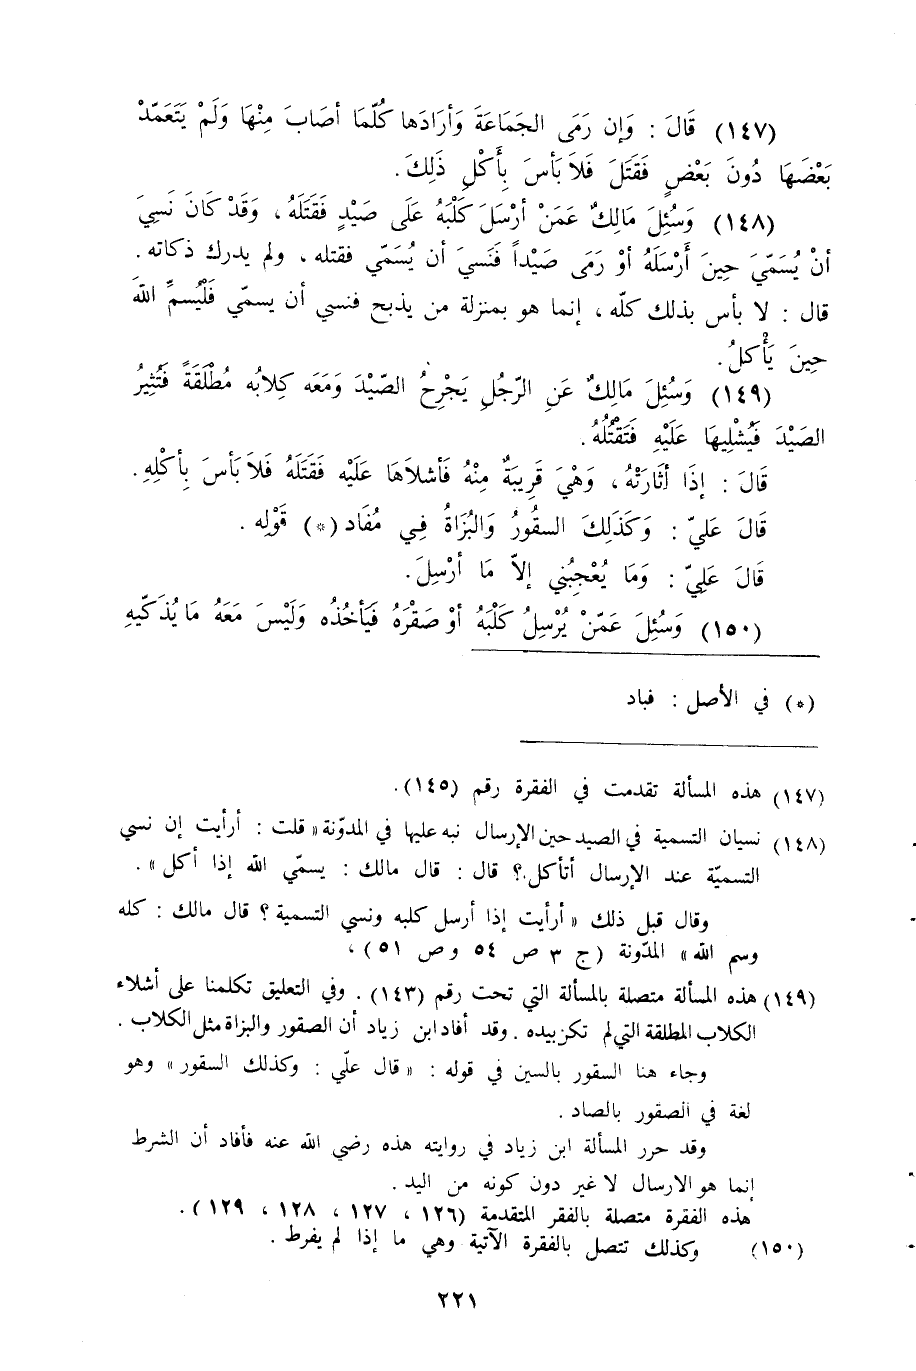 (١٤٧) قَالَ : وَإن رَمَى الجَمَاعَةَ وَأرَادَها كُلّمَا أصَابَ مِنْهَا وَلَمْ يَتَعَمَّدْ
بَعْضَهَا دُونَ بَعْضٍ فَقَتَلَ فَلاَ بَأسَ بِأَكْلِ ذَلِكَ .
(١٤٨) وَسُئِلَ مَالِكٌ عَمَنْ أرْسَلَ كَلْبَهُ عَلَى صَيْدٍ فَقَتَلَهُ ، وَقَدْ كَانَ نَسِيَ
أنْ يُسَمّيَ حِينَ أَرْسَلَهُ أوْ رَمَى صَيْداً فَنَسيَ أن يُسَمّي فقتله ، ولم يدرك ذكاته .
قال : لا بأس بذلك كلّه ، إنما هو بمنزلة من يذبح فنسي أن يسمّي فَلْيُسمِّ اللّهَ
حِينَ يَأْكلُ .
(١٤٩) وَسُئِلَ مَالِكٌ عَنِ الرّجُلِ يَجْرِحُ الصّيْدَ وَمَعَه كِلابُه مُطْلَقَةً فَتُثِيرُ
الصّيْدَ فَيُشْلِيهَا عَلَيْهِ فَتَقْتُلُهُ .
قَالَ : إذَا أثَارَتْهُ ، وَهْيَ قَرِيبَةٌ مِنْهُ فَأشلاَهَا عَلَيْه فَقَتَلَهُ فَلاَ بَأسَ بِأكْلِهِ .
قَالَ عَليّ : وَكَذَلِكَ السقُورُ وَالبُزَاةُ فِي مُفَاد (*) قَوْلِه .
قَالَ عَلِيّ : وَمَا يُعْجِبُني إلاّ مَا أرْسِلَ .
(١٥٠) وَسُئِلَ عَمّنْ يُرْسِلُ كَلْبَهُ أوْ صَقْرَهُ فَيَأخُذُه وَلَيْسَ مَعَهُ مَا يُذَكّيهِ
(*) في الأصل : فباد
(١٤٧) هذه المسألة تقدمت في الفقرة رقم (١٤٥) .
(١٤٨) نسيان التسمية في الصيد حين الإرسال نبه عليها في المدوّنة « قلت : أرأيت إن نسي
التسميّة عند الإرسال أتأكل ؟ قال : قال مالك : يسمّي الله إذا أكل » .
وقال قبل ذلك « أرأيت إذا أرسل كلبه ونسي التسمية ؟ قال مالك : كله
وسم الله » المدّونة (ج ٣ ص ٥٤ و ص ٥١) ،
(١٤٩) هذه المسألة متصلة بالمسألة التي تحت رقم (١٤٣) . وفي التعليق تكلمنا على أشلاء
الكلاب المطلقة التي لم تكن بيده . وقد أفاد ابن زياد أن الصقور والبزاة مثل الكلاب .
وجاء هنا السقور بالسين في قوله : « قال علّي : وكذلك السقور » وهو
لغة في الصقور بالصاد .
وقد حرر المسألة ابن زياد في روايته هذه رضي الله عنه فأفاد أن الشرط
إنما هو الارسال لا غير دون كونه من اليد .
هذه الفقرة متصلة بالفقر المتقدمة (١٢٦ ، ١٢٧ ، ١٢٨ ، ١٢٩) .
(١٥٠) وكذلك تتصل بالفقرة الآتية وهي ما إذا لم يفرط .
٢٢١